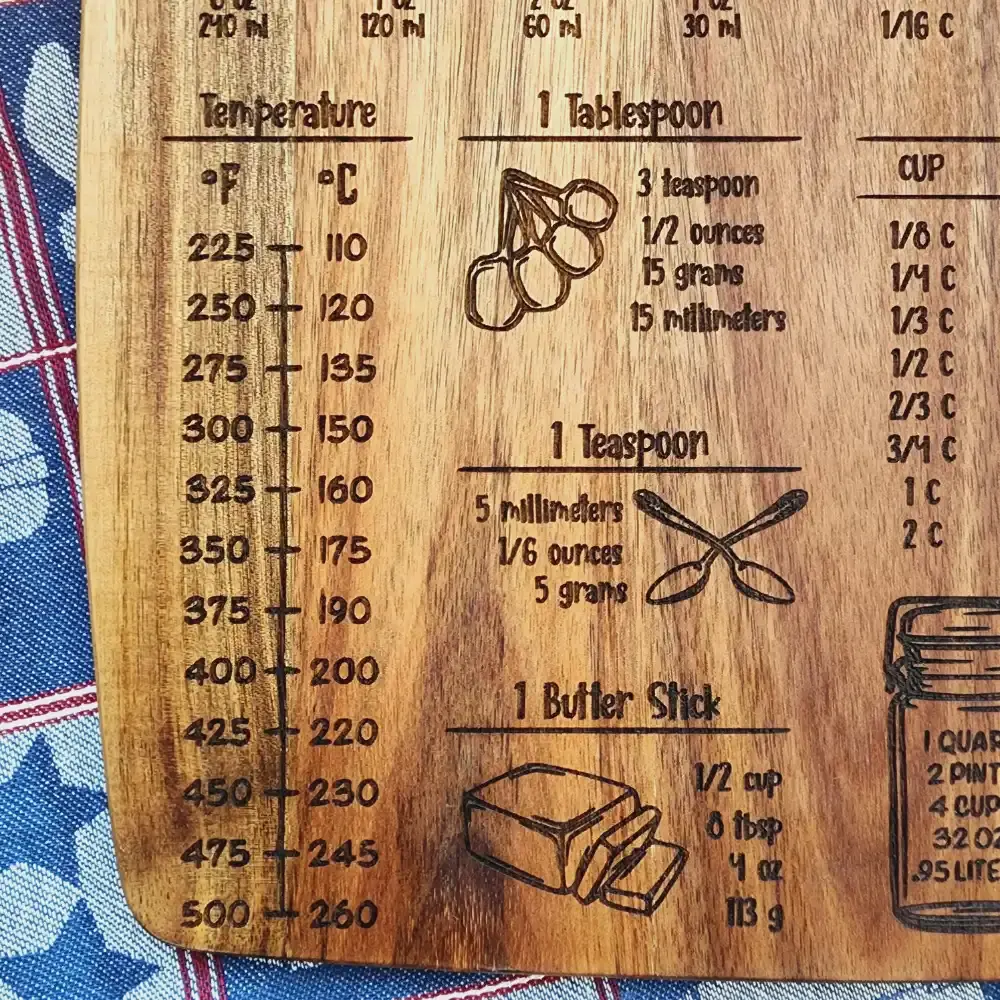 8 oz 4 oz 2 oz 1 oz
240 ml 120 ml 60 ml 30 ml 1/16 C
Temperature
°F °C
225 110
250 120
275 135
300 150
325 160
350 175
375 190
400 200
425 220
450 230
475 245
500 260
1 Tablespoon
3 teaspoon
1/2 ounces
15 grams
15 millimeters
1 Teaspoon
5 millimeters
1/6 ounces
5 grams
1 Butter Stick
1/2 cup
8 tbsp
4 oz
113 g
CUP
1/8 C
1/4 C
1/3 C
1/2 C
2/3 C
3/4 C
1 C
2 C
1 QUAR
2 PINT
4 CUP
32 OZ
.95 LITE